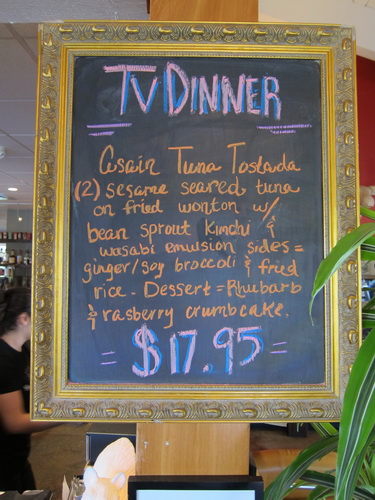 TV DINNER
Asain Tuna Tostada
(2) sesame seared tuna
on fried wonton w/
bean sprout Kimchi &
wasabi emulsion sides =
ginger/soy broccoli & fried
rice. Dessert = Rhubarb
& rasberry crumbcake.
= $17.95 =